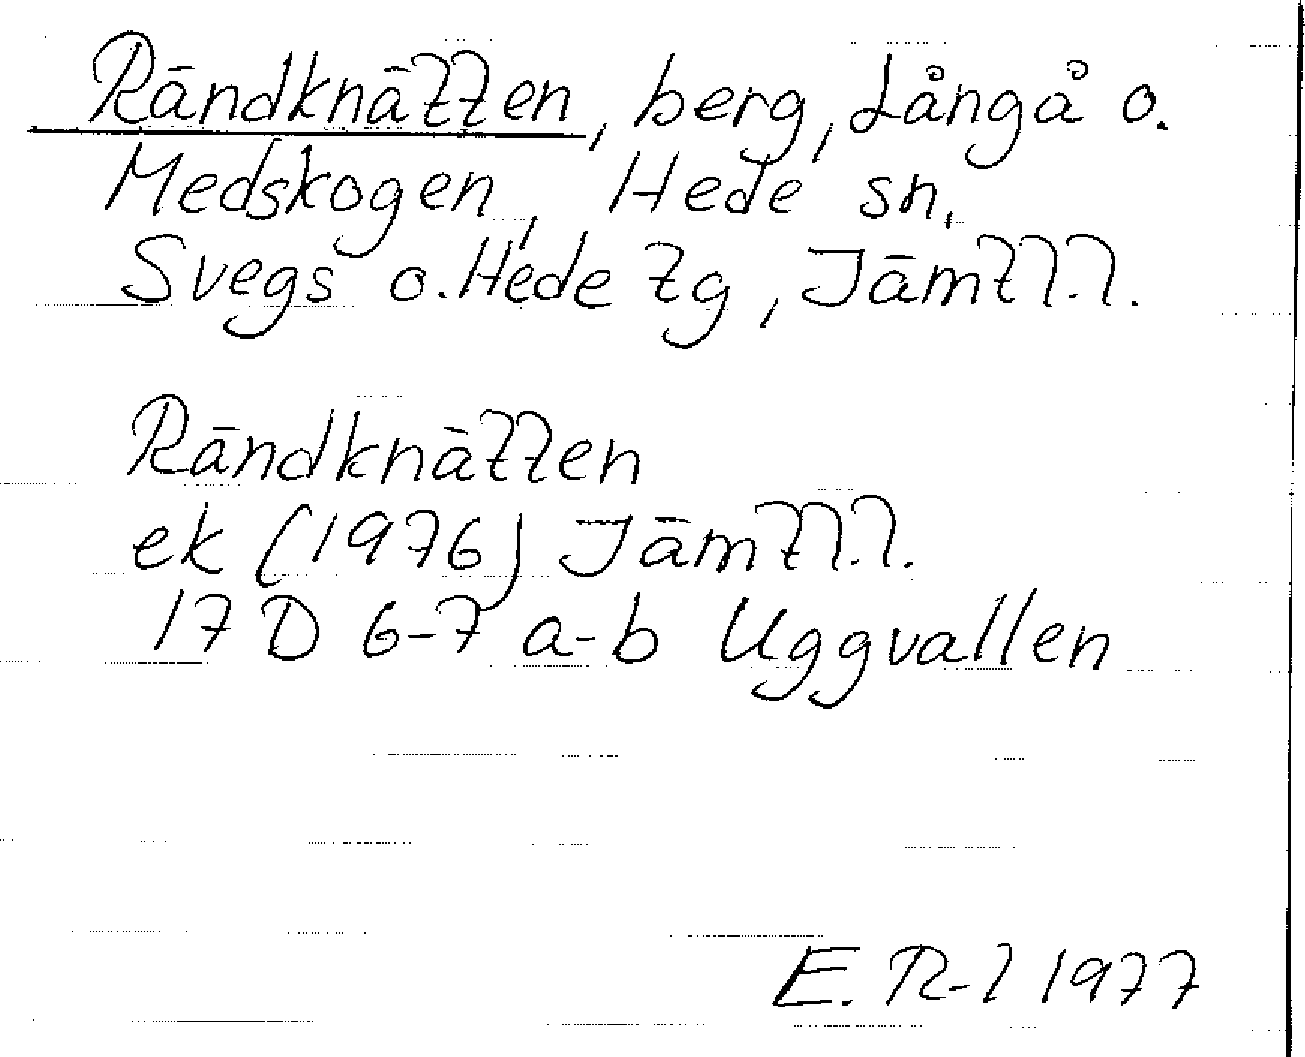 Rändknätten, berg, Långå o.
Medskogen, Hede sn,
Svegs o. Hede tg, Jämtl.l.
Rändknätten
ek (1976) Jämtl.l.
17 D 6-7 a-b Uggvallen
E. R-l 1977